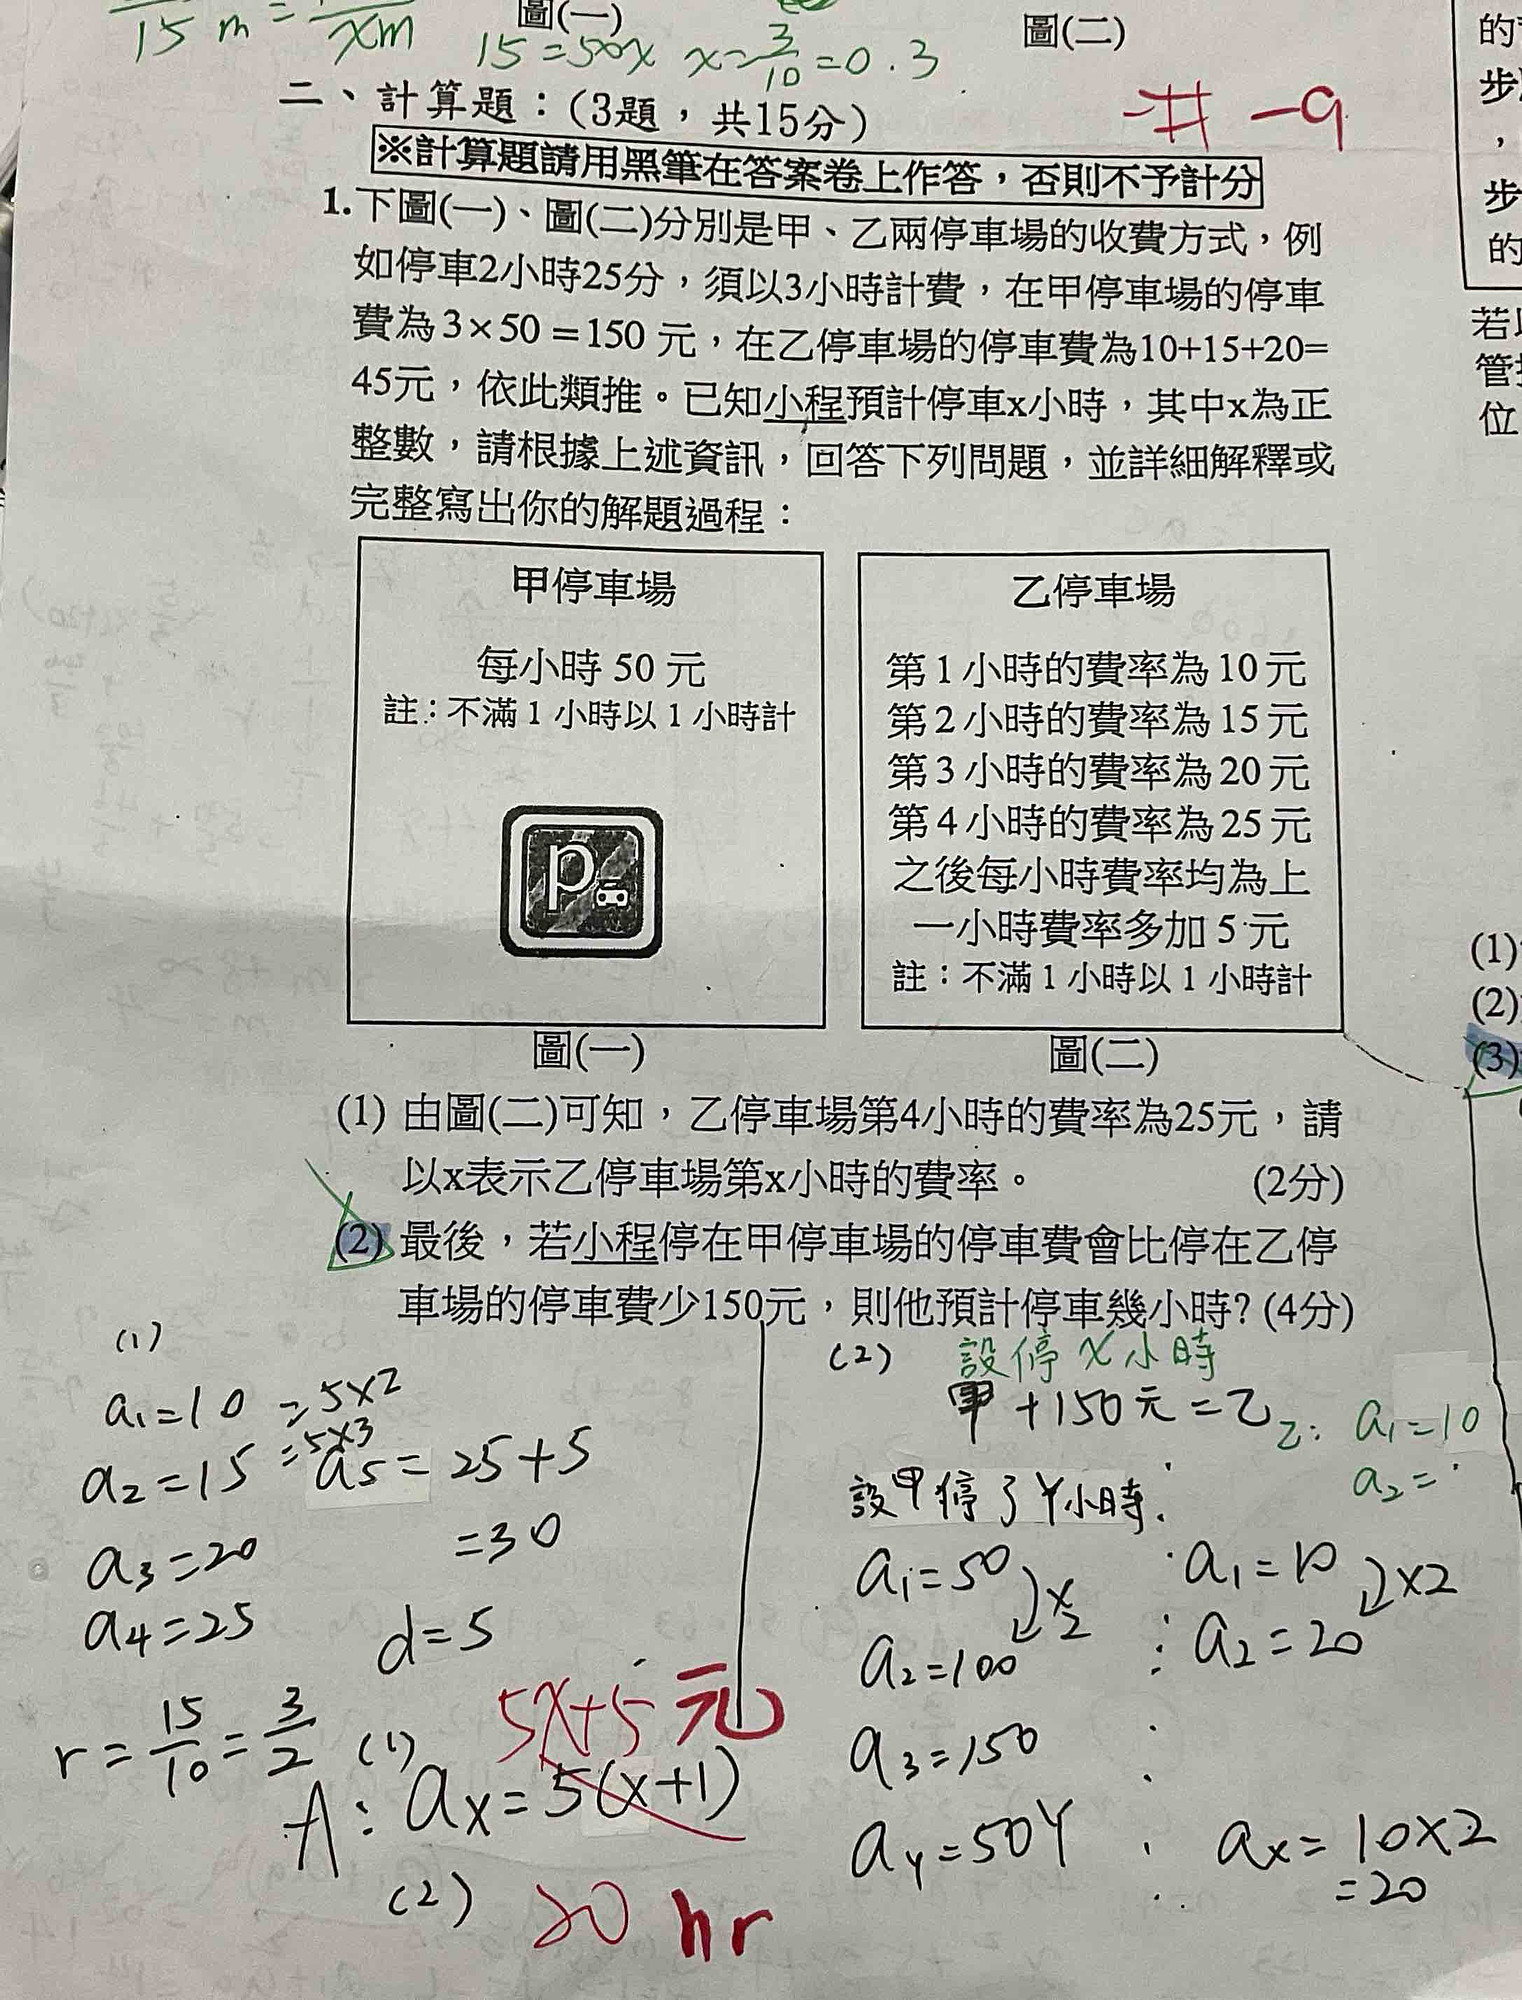 15 m = xm
圖(一)
15=50x x=3/10=0.3
圖(二)
二、計算題：(3題，共15分)
-9
※計算題請用黑筆在答案卷上作答，否則不予計分
1.下圖(一)、圖(二)分別是甲、乙兩停車場的收費方式，例
如停車2小時25分，須以3小時計費，在甲停車場的停車
費為3×50=150元，在乙停車場的停車費為10+15+20=
45元，依此類推。已知小程預計停車x小時，其中x為正
整數，請根據上述資訊，回答下列問題，並詳細解釋或
完整寫出你的解題過程：
甲停車場
每小時 50 元
註：不滿 1 小時以 1 小時計
P
圖(一)
乙停車場
第 1 小時的費率為 10 元
第 2 小時的費率為 15 元
第 3 小時的費率為 20 元
第 4 小時的費率為 25 元
之後每小時費率均為上
一小時費率多加 5 元
註：不滿 1 小時以 1 小時計
圖(二)
(1) 由圖(二)可知，乙停車場第4小時的費率為25元，請
以x表示乙停車場第x小時的費率。 (2分)
(2) 最後，若小程停在甲停車場的停車費會比停在乙停
車場的停車費少150元，則他預計停車幾小時? (4分)
(1)
a1=10 =5×2
a2=15 =5×3
a5=25+5
=30
a3=20
a4=25
d=5
r=15/10=3/2
5x+5 元
(1)
A: ax=5(x+1)
(2) 20 hr
(2) 設停x小時
甲+150元=乙
乙: a1=10
a2=
設甲停了Y小時
a1=50 ×2
a1=10 ×2
a2=100
a2=20
a3=150
aY=50Y
ax=10×2
=20
的
步
，
步
的
若
管
位
(1)
(2)
(3)